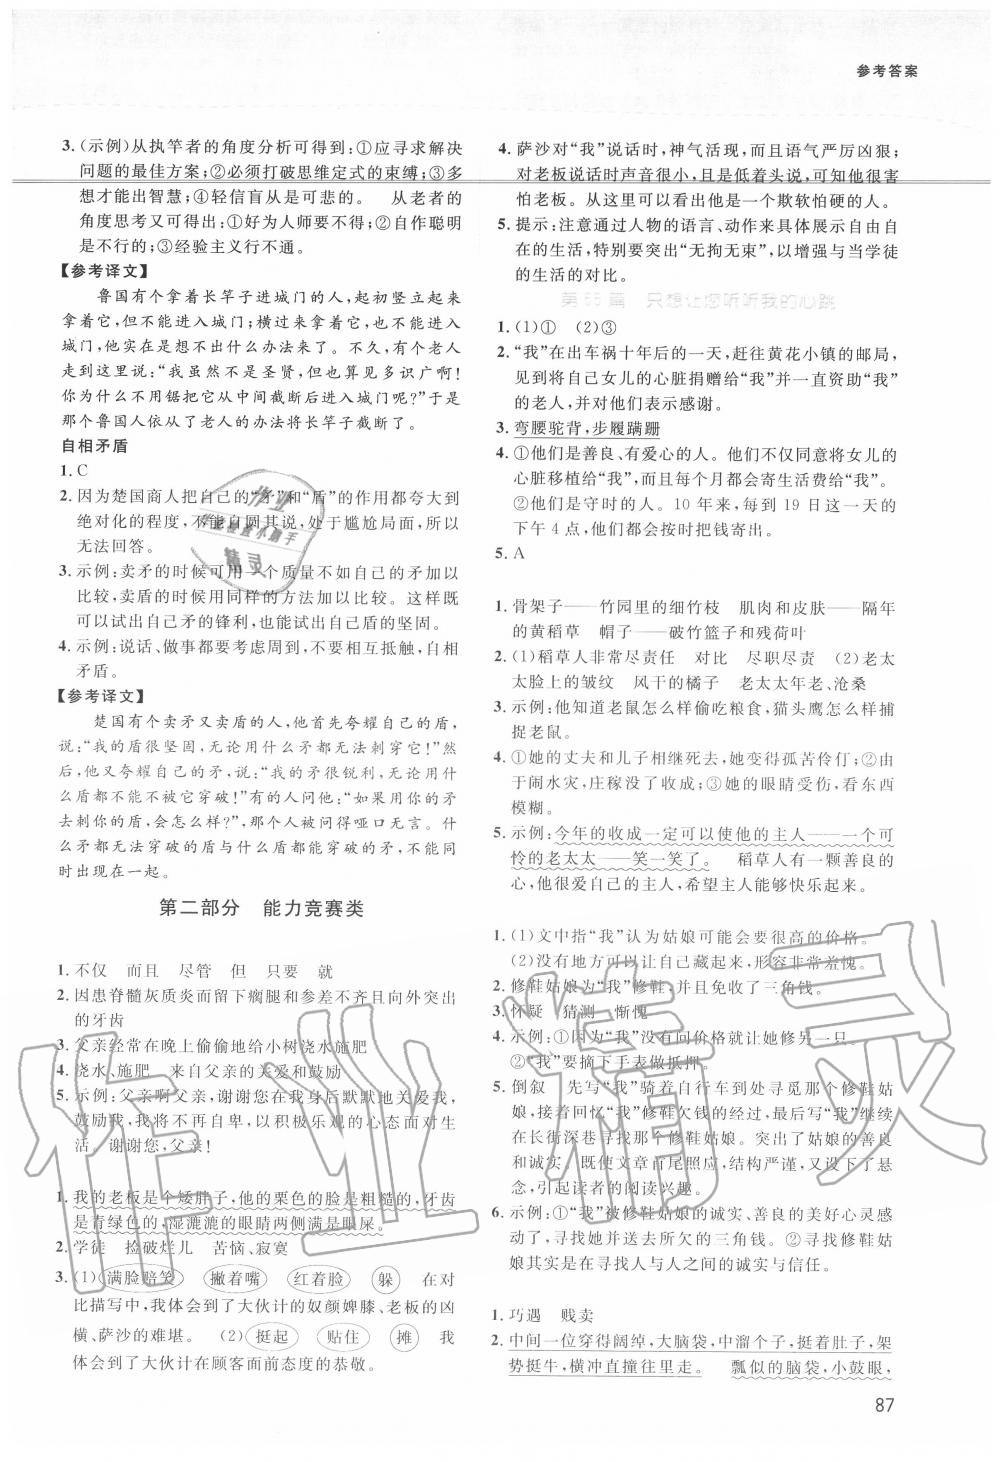 参考答案
3. (示例)从执竿者的角度分析可得到:①应寻求解决
问题的最佳方案;②必须打破思维定式的束缚;③多
想才能出智慧;④轻信盲从是可悲的。　从老者的
角度思考又可得出:①好为人师要不得;②自作聪明
是不行的;③经验主义行不通。
【参考译文】
鲁国有个拿着长竿子进城门的人,起初竖立起来
拿着它,但不能进入城门;横过来拿着它,也不能进入
城门,他实在是想不出什么办法来了。不久,有个老人
走到这里说:“我虽然不是圣贤,但只是多识广啊!
你为什么不用锯把它从中间截断后进入城门呢?”于是
那个鲁国人依从了老人的办法将长竿子截断了。
自相矛盾
1. C
2. 因为楚国商人把自己的“矛”和“盾”的作用都夸大到
绝对化的程度,不能自圆其说,处于尴尬局面,所以
无法回答。
3. 示例:卖矛的时候可用一个质量不如自己的矛加以
比较,卖盾的时候用同样的方法加以比较。这样既
可以试出自己矛的锋利,又可以试出自己盾的坚固。
4. 示例:说话、做事都要考虑周到,不要相互抵触,自相
矛盾。
【参考译文】
楚国有个卖矛又卖盾的人,他首先夸耀自己的盾,
说:“我的盾很坚固,无论用什么矛都无法刺穿它!”然
后,他又夸耀自己的矛,说:“我的矛很锐利,无论用什
么盾都不能不被它穿破!”有的人问他:“如果用你的矛
去刺你的盾,会怎么样?”,那个人被问得哑口无言。什
么矛都无法穿破的盾与什么盾都能穿破的矛,不能同
时放在一起。
第二部分　能力竞赛类
1. 不仅　而且　尽管　但　只要　就
2. 因患脊髓灰质炎而留下瘸腿和参差不齐且向外突出
的牙齿
3. 父亲经常在晚上偷偷地给小树浇水施肥
4. 浇水、施肥　来自父亲的关爱和鼓励
5. 示例:父亲啊父亲,谢谢您在我身后默默地关爱我,
鼓励我,我将变得坚强,以积极乐观的心态面对生
活　谢谢您,父亲!
1. 我的老板是个矮胖子,他的栗色的脸是粗糙的,牙齿
是青绿色的,湿漉漉的眼睛两侧满是眼屎。
2. 学徒　捡破烂儿　苦恼、寂寞
3. (1)满脸赔笑　撇着嘴　红着脸　躲　在对
比描写中,我体会到了大伙计的奴颜婢膝、老板的凶
横、萨沙的难堪。　(2)挺起　贴住　摊　我
体会到了大伙计在顾客面前态度的恭敬。
4. 萨沙对“我”说话时,神气活现,而且语气严厉凶狠;
对老板说话时声音很小,且低着头说,可见他很害
怕老板。从这里可以看出他是一个欺软怕硬的人。
5. 提示:注意通过人物的语言、动作来具体展示自由自
在的生活,特别要突出“无拘无束”,以增强与当学徒
的生活的对比。
第66篇　只想让您听听我的心跳
1. (1)①　(2)③
2. “我”在出车祸十年后的一天,赶往黄花小镇的邮局,
见到将自己女儿的心脏捐赠给“我”并一直资助“我”
的老人,并对他们表示感谢。
3. 弯腰驼背,步履蹒跚
4. ①他们是善良、有爱心的人。他们不仅同意将女儿的
心脏移植给“我”,而且每个月都会寄生活费给“我”。
②他们是守时的人。10年来,每到19日这一天的
下午4点,他们都会按时把钱寄出。
5. A
1. 骨架子——竹园里的细竹枝　肌肉和皮肤——隔年
的黄稻草　帽子——破竹篮子和残荷叶
2. (1)稻草人非常尽责任　对比　尽职尽责　(2)老太
太脸上的皱纹　风干的橘子　老太太年老、沧桑
3. 示例:他知道老鼠怎么样偷吃粮食,猫头鹰怎么样捕
捉老鼠。
4. ①她的丈夫和儿子相继死去,她变得孤苦伶仃;②由
于闹水灾,庄稼没了收成;③她的眼睛受伤,看东西
模糊。
5. 示例:今年的收成一定可以使他的主人——一个可
怜的老太太——笑一笑了。　稻草人有一颗善良的
心,他很爱自己的主人,希望主人能够快乐起来。
1. (1)文中指“我”认为姑娘可能会要很高的价格。
(2)没有地方可以让自己藏起来,形容非常羞愧。
2. 修鞋姑娘为“我”修鞋,并且免收了三角钱。
3. 怀疑　猜测　惭愧
4. 示例:①因为“我”没有问价格就让她修另一只。
②“我”要摘下手表做抵押。
5. 倒叙　先写“我”骑着自行车到处寻觅那个修鞋姑
娘,接着回忆“我”修鞋欠钱的经过,最后写“我”继续
在长街深巷寻找那个修鞋姑娘。突出了姑娘的善良
和诚实。既使文章首尾照应,结构严谨,又从深化了主题,
引起读者的阅读兴趣。
6. 示例:①“我”被修鞋姑娘的诚实、善良的美好心灵感
动,寻找她并还所欠的三角钱。②寻找修鞋姑
娘其实是在寻找人与人之间的诚实与信任。
1. 巧遇　贱卖
2. 中间一位穿得阔绰,大脑袋,中溜个子,挺着肚子,架
势挺牛,横冲直撞往里走。　瓢似的脑袋,小鼓眼,
87
作业精灵